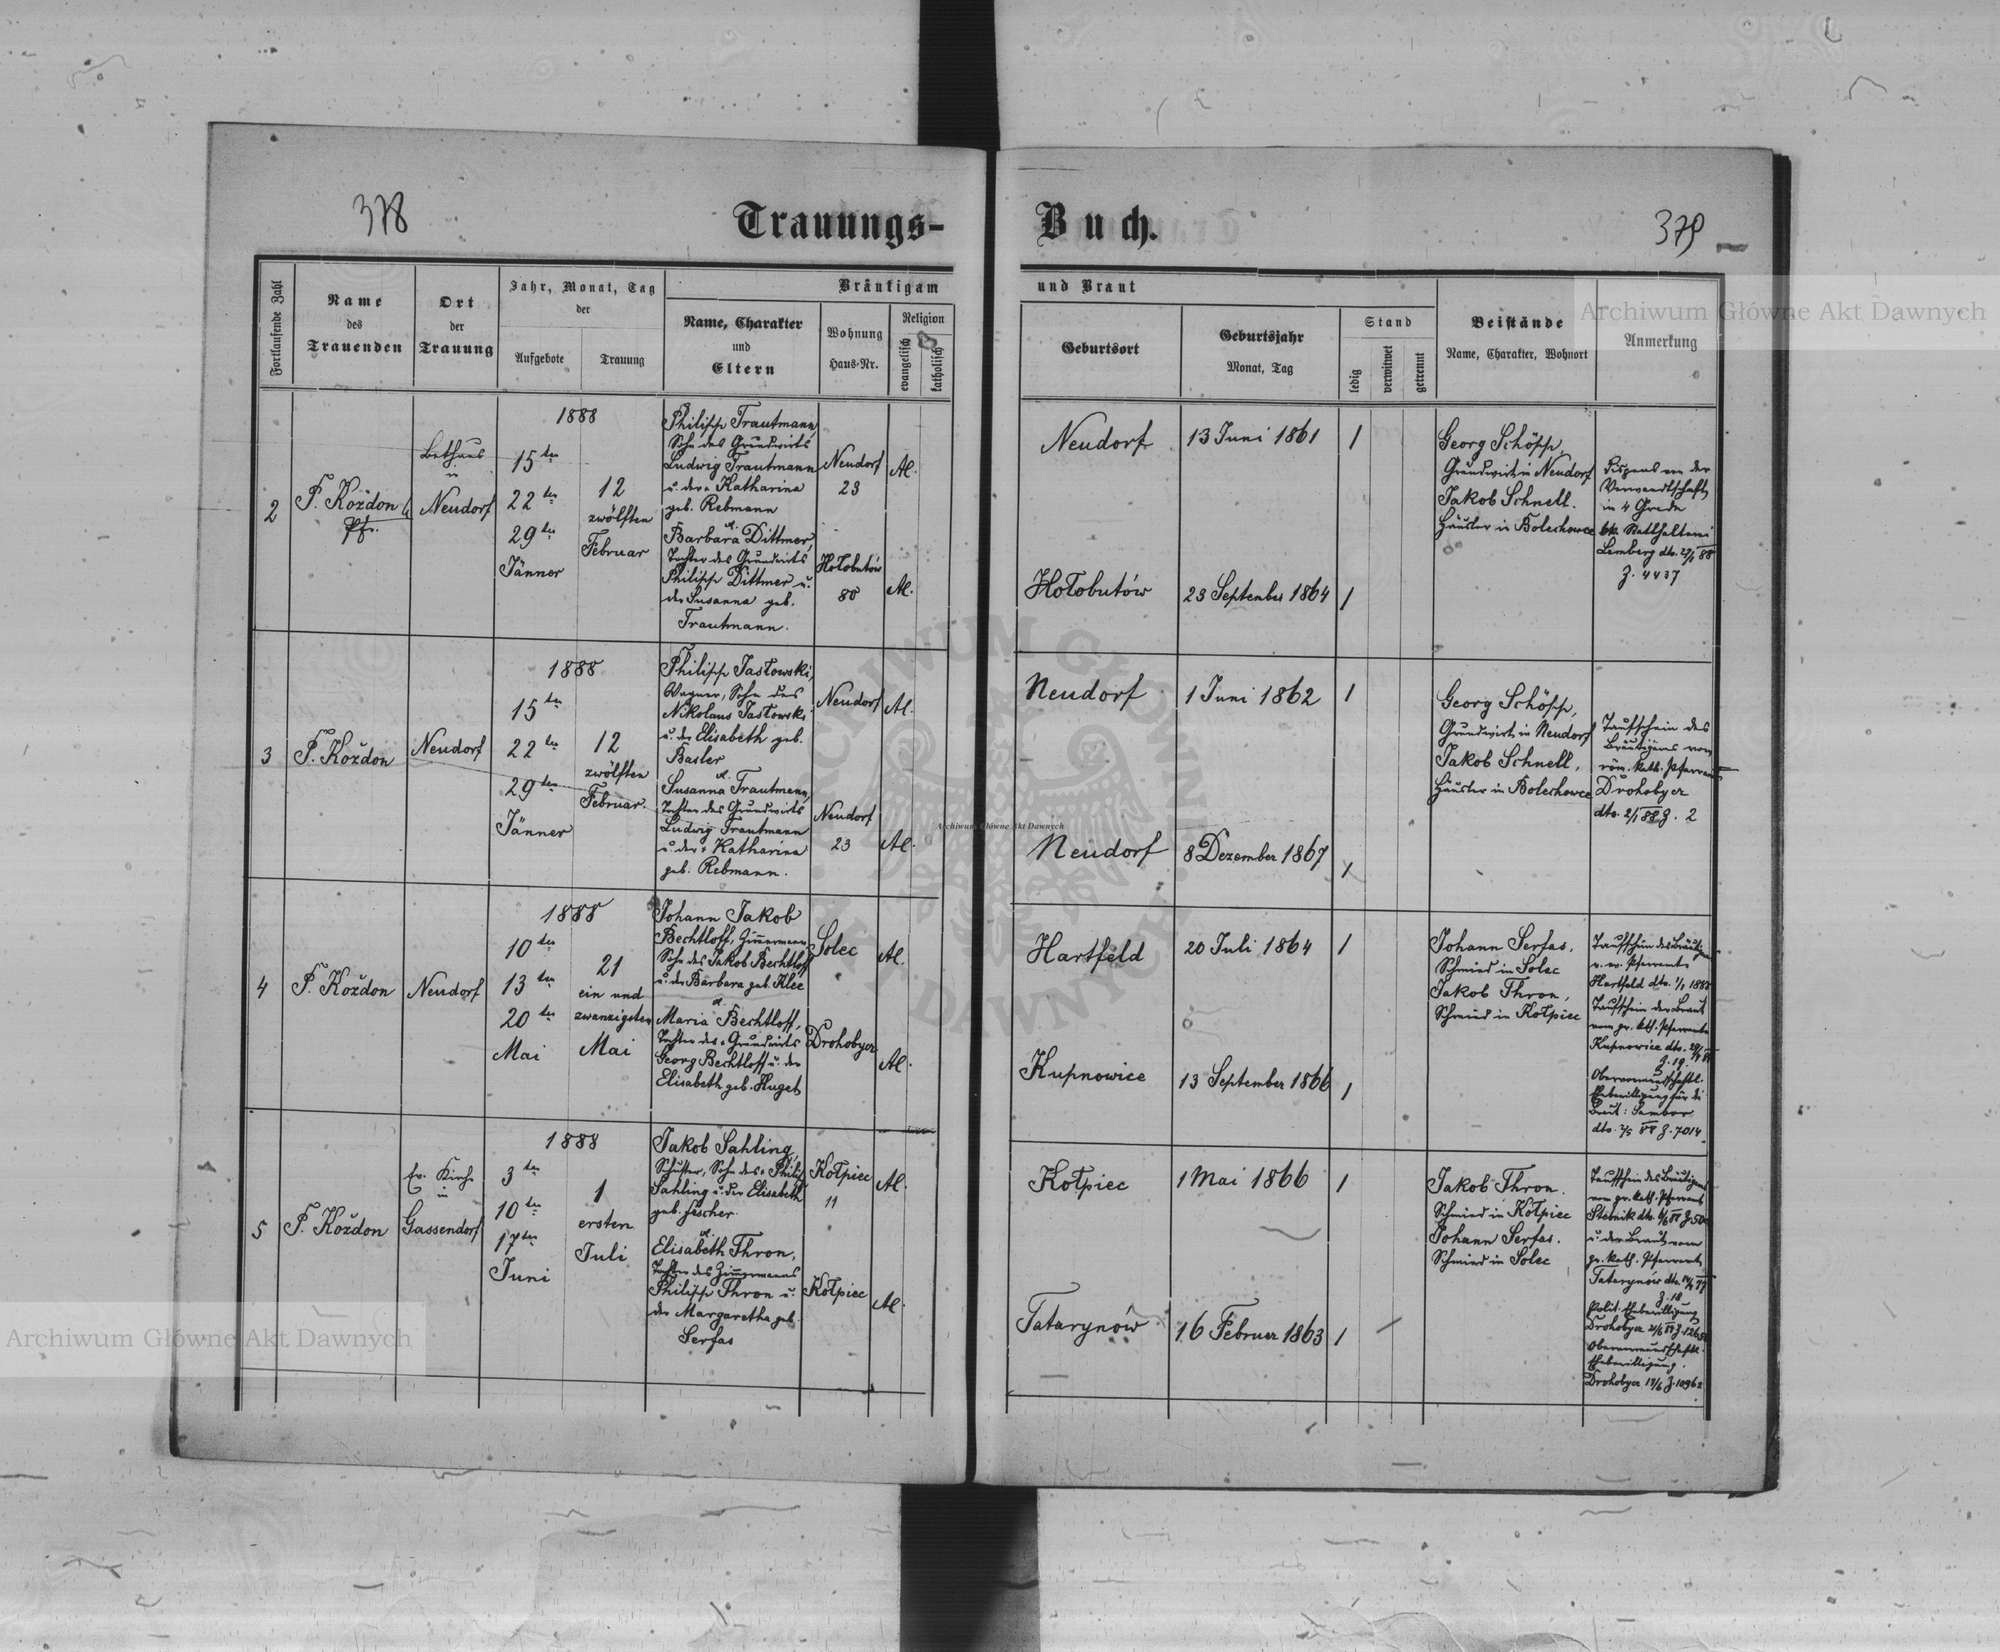 378
Trauungs-
Buch.
379
Fortlaufende Zahl
Name
des
Trauenden
Ort
der
Trauung
Jahr, Monat, Tag
der
Aufgebote
Trauung
Bräutigam
Name, Charakter
und
Eltern
Wohnung
Haus-Nr.
Religion
evangelisch
katholisch
und Braut
Geburtsort
Geburtsjahr
Monat, Tag
Stand
ledig
verwitwet
getrennt
Beistände
Name, Charakter, Wohnort
Anmerkung
2
F. Koždon
Pfr.
Bethaus
in
Neudorf
1888
15ten
22ten
29ten
Jänner
12
zwölften
Februar
Philipp Trautmann,
Sohn des Grundwirts
Ludwig Trautmann
u. der Katharina
geb. Rebmann
u.
Barbara Dittmer,
Tochter des Grundwirts
Philipp Dittmer u.
der Susanna geb.
Trautmann.
Neudorf
23
Hołobutów
80
Al.
Al.
Neudorf
13 Juni 1861
1
Hołobutów
23 September 1864
1
Georg Schöpp,
Grundwirt in Neudorf
Jakob Schnell.
Häusler in Bolechowce
Dispens von der
Verwandtschaft
in 4 Grade
kk. Statthalterei
Lemberg dto. 27/1 88
Z. 4437
3
F. Koždon
Neudorf
1888
15ten
22ten
29ten
Jänner
12
zwölften
Februar.
Philipp Jasłowski,
Wagner, Sohn des
Nikolaus Jasłowski
u. der Elisabeth geb.
Basler
u.
Susanna Trautmann,
Tochter des Grundwirts
Ludwig Trautmann
u. der Katharina
geb. Rebmann.
Neudorf
Neudorf
23
Al.
Al.
Neudorf
1 Juni 1862
1
Neudorf
8 Dezember 1867
1
Georg Schöpp,
Grundwirt in Neudorf
Jakob Schnell,
Häusler in Bolechowce
Taufschein des
Bräutigams vom
röm. kath. Pfarramt
Drohobycz
dto. 2/1 88 Z. 2
4
F. Koždon
Neudorf
1888
10ten
13ten
20ten
Mai
21
ein und
zwanzigsten
Mai
Johann Jakob
Bechtloff, Zimmermann,
Sohn des Jakob Bechtloff
u. der Barbara geb. Klee
u.
Maria Bechtloff,
Tochter des Grundwirts
Georg Bechtloff u. der
Elisabeth geb. Huget
Solec
Drohobycz
Al.
Al.
Hartfeld
20 Juli 1864
1
Kupnowice
13 September 1866
1
Johann Serfas,
Schmied in Solec
Jakob Thron,
Schmied in Kołpiec
Taufschein des Bräutigams
v. ev. Pfarramte
Hartfeld dto. 1888
Taufschein der Braut
vom gr. kth. Pfarramte
Kupnowice dto.
Z. 19.
Obervormundschaftl.
Ehebewilligung für die
Braut: Sambor
dto. 2/5 88 Z. 7014
5
F. Koždon
Ev. Kirche
in
Gassendorf
1888
3ten
10ten
17ten
Juni
1
ersten
Juli
Jakob Sahling,
Schuster, Sohn des Philipp
Sahling u. der Elisabeth
geb. Fescher.
u.
Elisabeth Thron,
Tochter des Zimmermanns
Philipp Thron u.
der Margaretha geb.
Serfas
Kołpiec
11
Kołpiec
Al.
Al.
Kołpiec
1 Mai 1866
1
Tatarynów
16 Februar 1863
1
Jakob Thron.
Schmied in Kołpiec
Johann Serfas.
Schmied in Solec
Taufschein des Bräutigams
vom gr. kath. Pfarramt
Stebnik dto. 6/6 88 Z. 50
u. der Braut vom
gr. kath. Pfarramt
Tatarynów dto.
Z. 18
Polit. Ehebewilligung
Drohobycz
Obervormundschaftl.
Ehebewilligung.
Drohobycz 13/6 Z. 10962
Archiwum Główne Akt Dawnych
Archiwum Główne Akt Dawnych
Archiwum Główne Akt Dawnych
ARCHIWUM GŁÓWNE AKT DAWNYCH